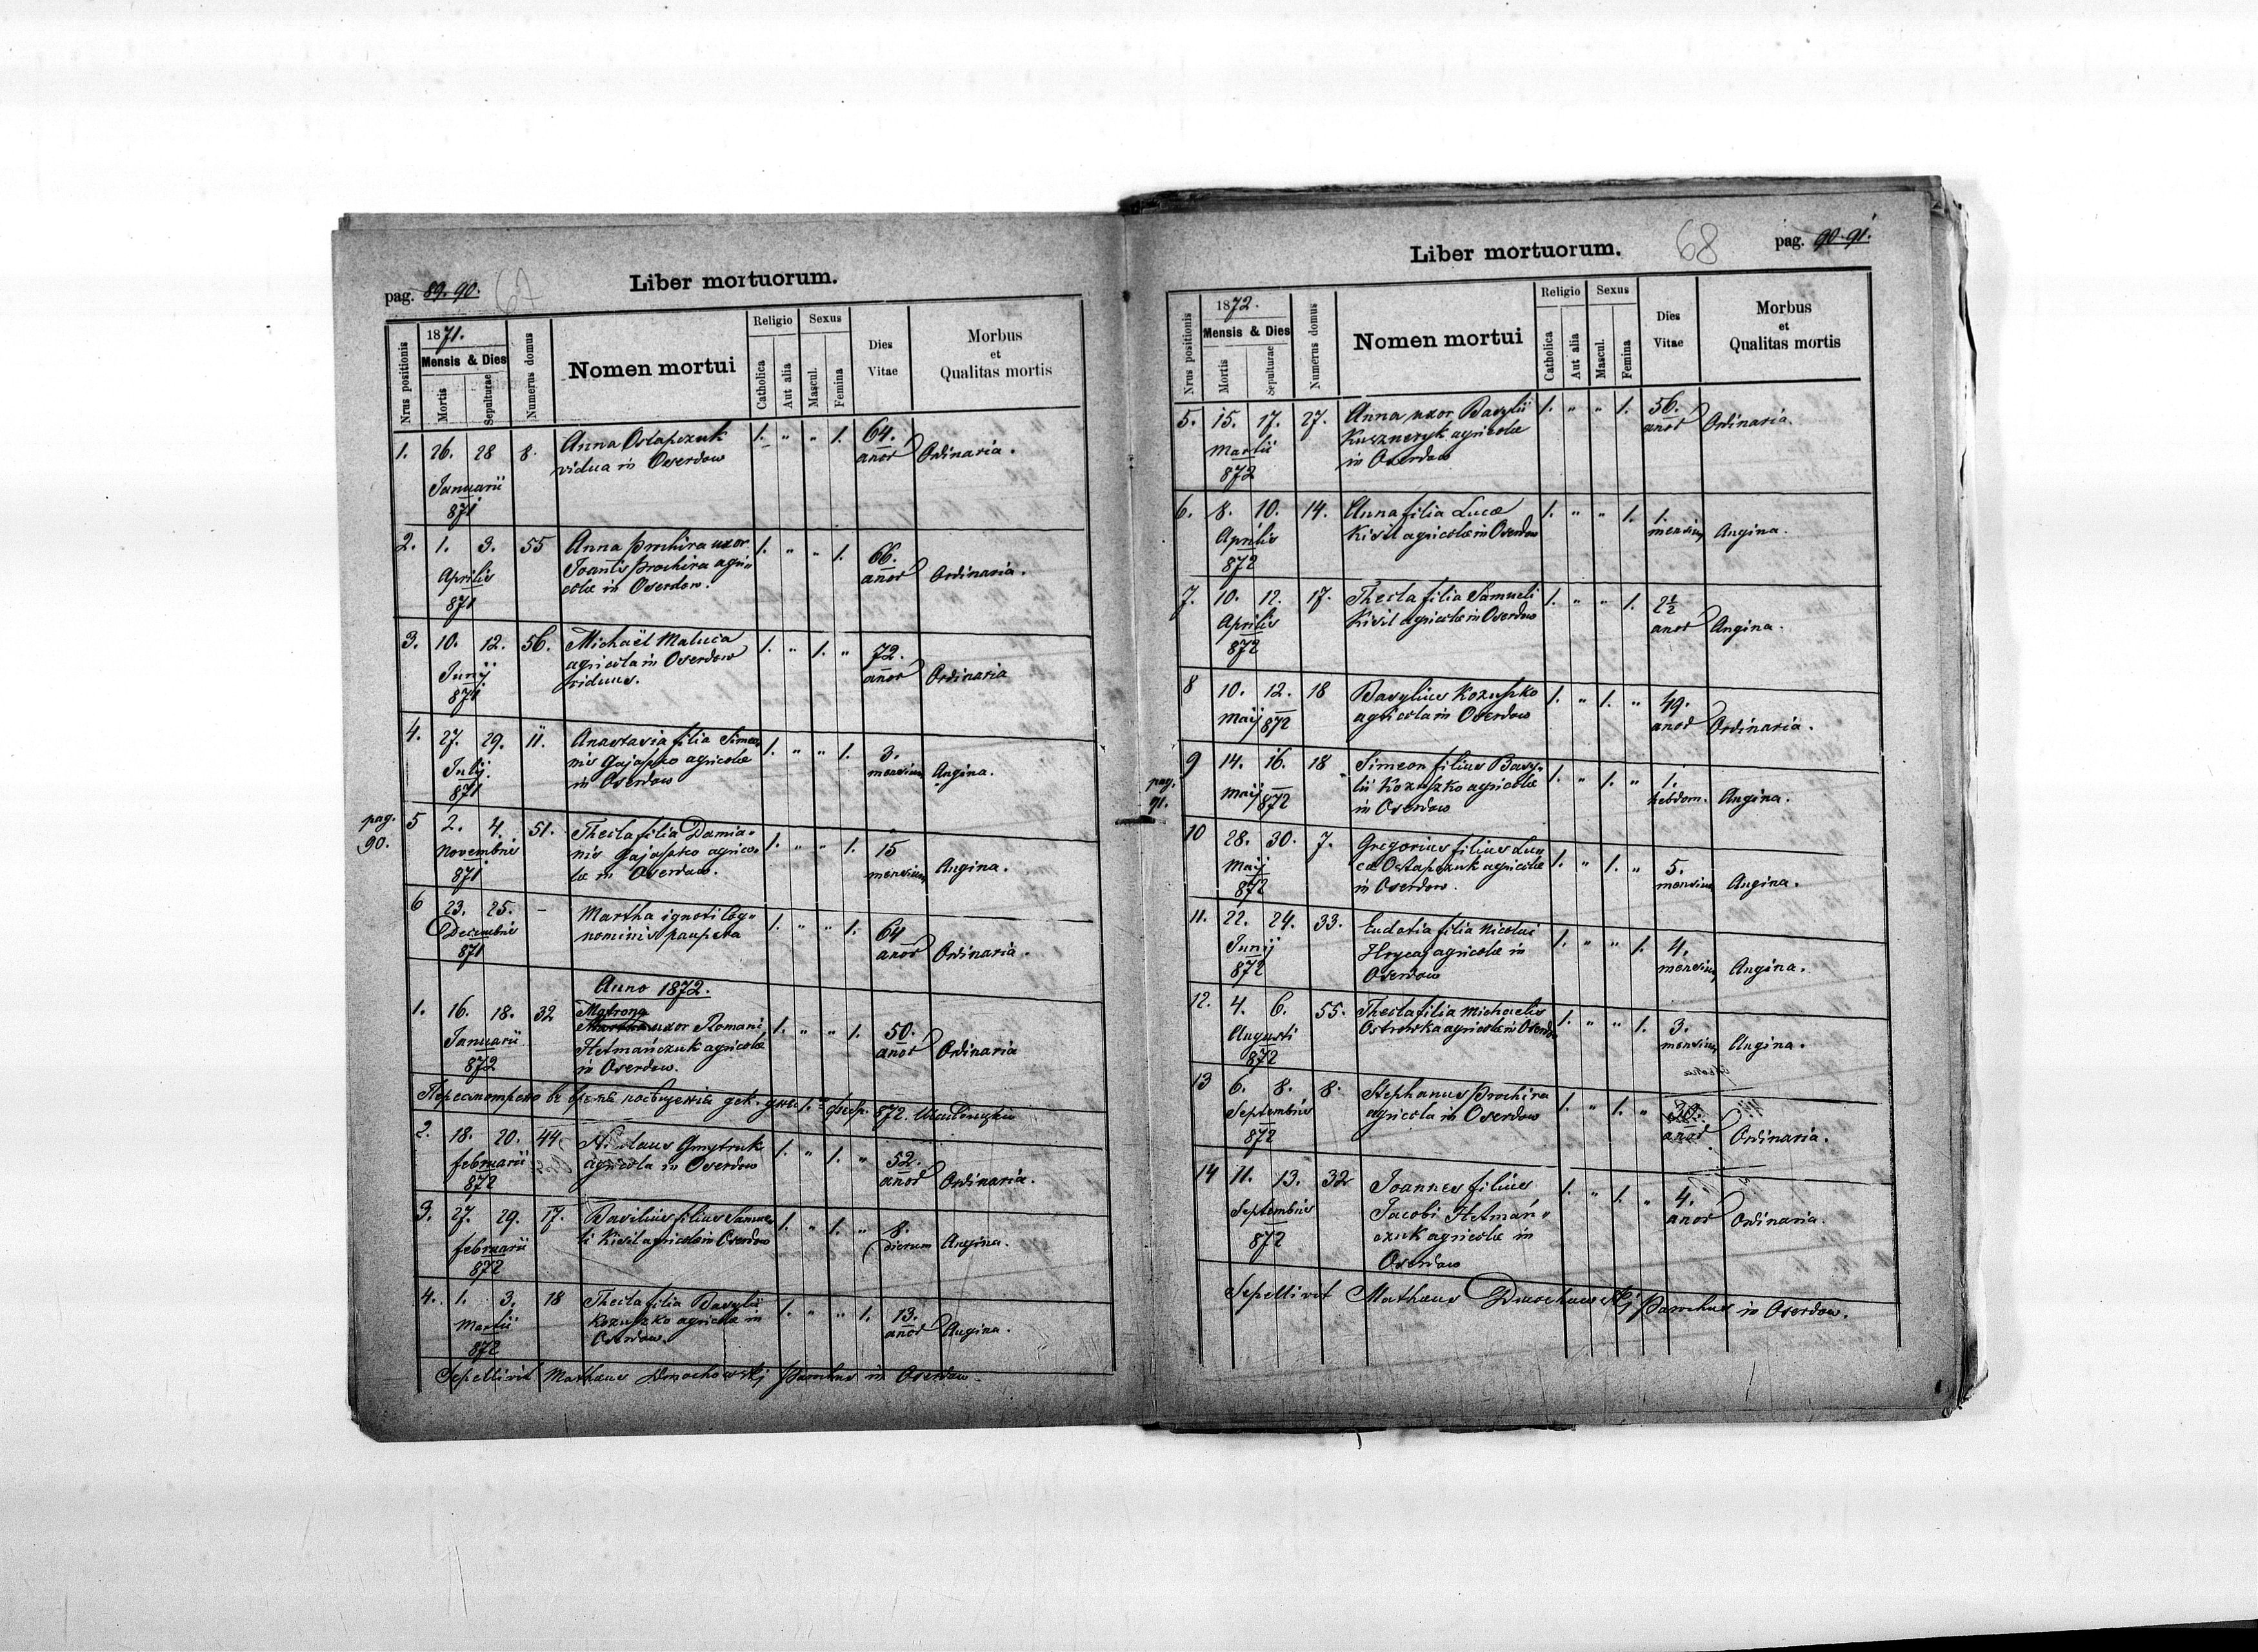 pag. 89. 90. 67
Liber mortuorum.
Nrus positionis
1871.
Mensis & Dies
Mortis
Sepulturae
Numerus domus
Nomen mortui
Religio
Catholica
Aut alia
Sexus
Mascul.
Femina
Dies
Vitae
Morbus
et
Qualitas mortis
1. 26. 28 8. Anna Ostapczuk 1. " " 1. 64.
vidua in Oserdow anor Ordinaria.
Januarii
871
2. 1. 3. 55 Anna Prochira uxor 1. " " 1. 66.
Aprilis Joantis Prochira agri„ anor Ordinaria.
871 colæ in Oserdow.
3. 10. 12. 56. Michaël Maluca 1. " 1. " 72.
Junij agricola in Oserdow anor Ordinaria
871 viduus.
4. 27. 29. 11. Anastasia filia Simeo„ 1. " " 1. 3.
Julij nis Gajaszko agricolæ mensium Angina.
871 in Oserdow
pag.
90.
5 2. 4. 51. Thecla filia Damia„ 1. " " 1. 15
Novembris nis Gajaszko agrico„ mensium Angina.
871 læ in Oserdow.
6 23. 25. - Martha ignoti Cog„ 1. " " 1. 64
Decembris nominis paupera anor Ordinaria.
871
Anno 1872.
1. 16. 18. 32 Matrona
Martha uxor Romani 1. " " 1. 50.
Januarii Hetmańczuk agricolæ anor Ordinaria
872 in Oserdow.
872.
2. 18. 20. 44. Nicolaus Gmytruk 1. " 1. " 52.
februarii agricola in Oserdow anor Ordinaria.
872
3. 27. 29. 17. Basilius filius Samue„ 1. " 1. " 8.
februarii li Kisil agricolæ in Oserdow dierum Angina.
872
4. 1. 3. 18 Thecla filia Basylii 1. " " 1. 13.
Martii Kozuszko agricolæ in anor Angina.
872 Oserdow.
Sepellivit Mathæus Dmochowskj Parochus in Oserdow.
Liber mortuorum.
68
pag. 90. 91.
Nrus positionis
1872.
Mensis & Dies
Mortis
Sepulturae
Numerus domus
Nomen mortui
Religio
Catholica
Aut alia
Sexus
Mascul.
Femina
Dies
Vitae
Morbus
et
Qualitas mortis
5. 15. 17. 27. Anna uxor Basylii 1. " " 1. 56.
Martii Kuszneryk agricolæ anor Ordinaria.
872 in Oserdow
6. 8. 10. 14. Anna filia Lucæ 1. " " 1. 1.
Aprilis Kisil agricolæ in Oserdow mensium Angina.
872
7. 10. 12. 17. Thecla filia Samueli 1. " " 1. 2½
Aprilis Kisil agricolæ in Oserdow anor Angina.
872
8 10. 12. 18 Basylius Kozuszko 1. " 1. " 49.
Maij 872 agricola in Oserdow anor Ordinaria.
pag.
91.
9 14. 16. 18 Simeon filius Basy„ 1. " 1. " 1.
Maij 872 lii Kozuszko agricolæ hebdom. Angina.
in Oserdow
10 28. 30. 7. Gregorius filius Lu„ 1. " 1. " 5.
Maij cæ Ostapczuk agricolæ mensium Angina.
872 in Oserdow.
11. 22. 24. 33. Eudocia filia Nicolai 1. " " 1. 4.
Junij Hrycaj agricolæ in mensium Angina.
872 Oserdow
12. 4. 6. 55. Thecla filia Michaelis 1. " " 1. 3.
Augusti Ostrowka agricolæ in Oserdow mensium Angina.
872
13 6. 8. 8. Stephanus Prochira 1. " 1. " 30.
Septembris agricola in Oserdow anor Ordinaria.
872
14 11. 13. 32 Joannes filius 1. " 1. " 4.
Septembris Jacobi Hetmań„ anor Ordinaria.
872 czuk agricolæ in
Oserdow
Sepellivit Mathæus Dmochowskj Parochus in Oserdow.